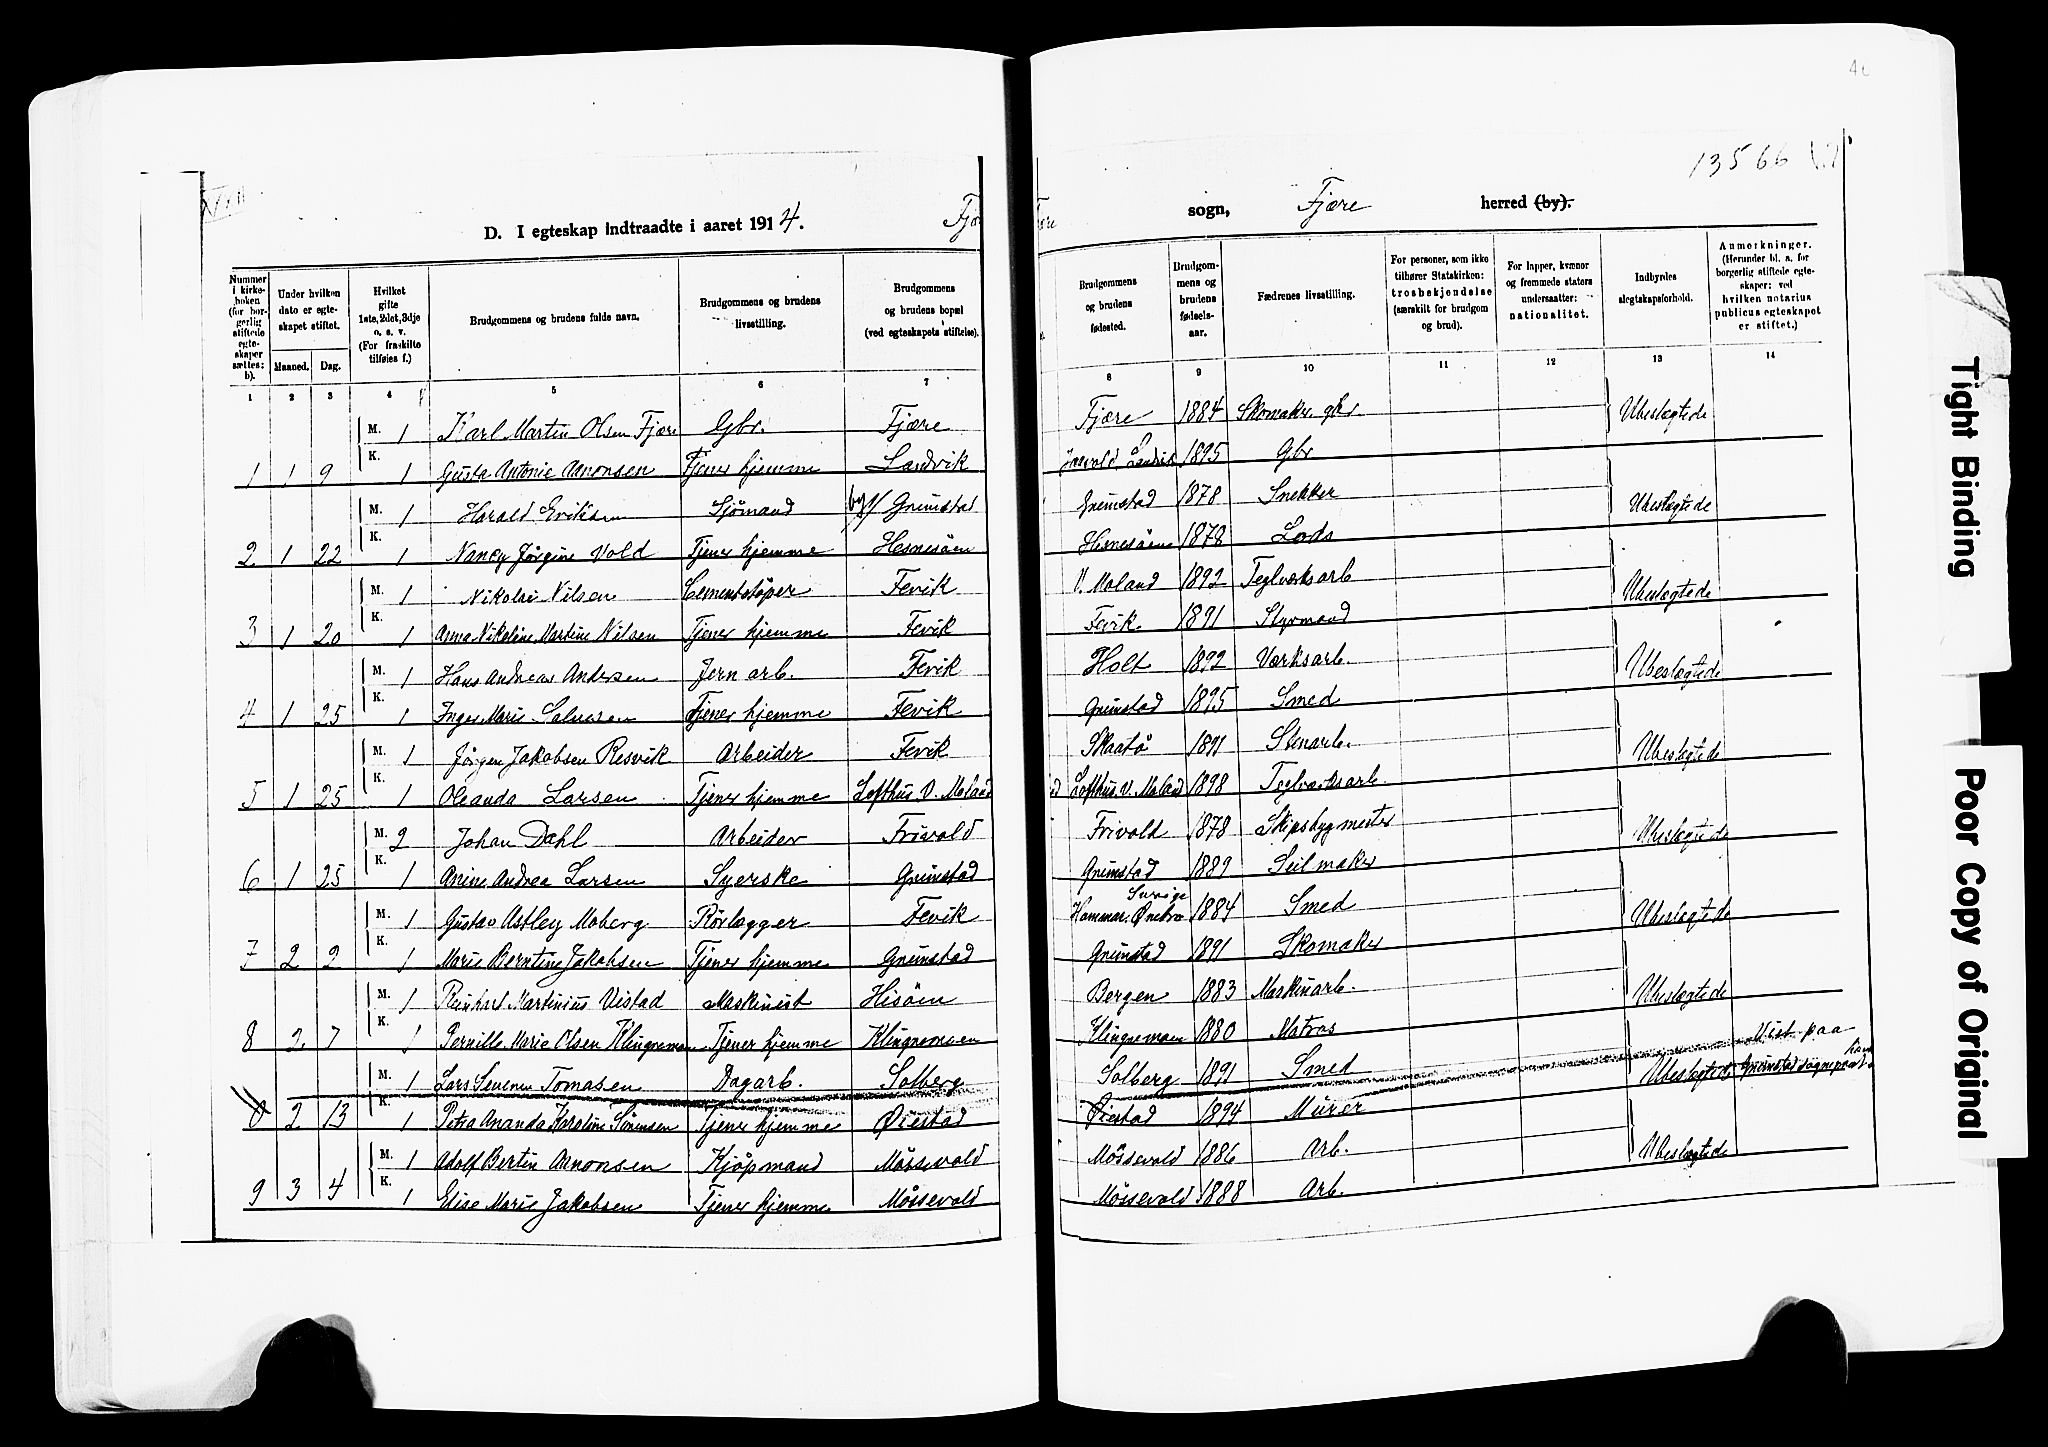 13566
D. I egteskap indtraadte i aaret 1914.
Fjære sogn, Fjære herred (by).
Nummer i kirke-boken (for bor-gerlig stiftede egte-skaper sættes: b).
Under hvilken dato er egte-skapet stiftet.
Maaned. Dag.
Hvilket gifte 1ste, 2det, 3dje o. s. v. (For fraskilte tilføies f.)
Brudgommens og brudens fulde navn.
Brudgommens og brudens livsstilling.
Brudgommens og brudens bopæl (ved egteskapets stiftelse).
Brudgommens og brudens fødested.
Brudgom-mens og brudens fødsels-aar.
Fædrenes livsstilling.
For personer, som ikke tilhører Statskirken: trosbekjendelse (særskilt for brudgom og brud).
For lapper, kvæner og fremmede staters undersaatter: nationalitet.
Indbyrdes slegtskapsforhold.
Anmerkninger. (Herunder bl. a. for borgerlig stiftede egte-skaper: ved hvilken notarius publicus egteskapet er stiftet.)
1 2 3 4 5 6 7 8 9 10 11 12 13 14
M. 1 Karl Martin Olsen Fjære Gbr. Fjære Fjære 1884 Skomaker gbr. Ubeslegtede
1 1 9 K. 1 Gusta Antonie Aanonsen Tjener hjemme Landvik Landvik 1895 Gbr
M. 1 Harald Eriksen Sjømand by/ Grimstad Grimstad 1878 Snekker Ubeslegtede
2 1 22 K. 1 Nancy Jørgine Vold Tjener hjemme Hesnesøen Hesnesøen 1878 Lods
M. 1 Nikolai Nilsen Cementstøper Fevik V. Moland 1892 Teglverksarb Ubeslegtede
3 1 20 K. 1 Anna Nikoline Martine Nilsen Tjener hjemme Fevik Fevik. 1891 Styrmand
M. 1 Hans Andreas Andersen Jern arb. Fevik Holt 1892 Værksarb. Ubeslegtede
4 1 25 K. 1 Inger Marie Salvesen Tjener hjemme Fevik Grimstad 1895 Smed
M. 1 Jørgen Jakobsen Resvik Arbeider Fevik Skaatø 1891 Stenarb. Ubeslegtede
5 1 25 K. 1 Oleanda Larsen Tjener hjemme Lofthus V. Moland Lofthus V. Moland 1898 Teglverksarb.
M. 2 Johan Dahl Arbeider Frivold Frivold 1878 Skipsbygmester Ubeslegtede
6 1 25 K. 1 Anine Andrea Larsen Syerske Grimstad Grimstad 1889 Seilmaker
M. 1 Gustav Astley Moberg Rørlægger Fevik Hammar. Örebro Sverige 1884 Smed Ubeslegtede
7 2 2 K. 1 Marie Berntine Jakobsen Tjener hjemme Grimstad Grimstad 1891 Skomaker
M. 1 Reinhart Martinius Vistad Maskinist Hisøen Bergen 1883 Maskinarb. Ubeslegtede
8 2 7 K. 1 Pernille Marie Olsen Klingremoen Tjener hjemme Klingremoen Klingremoen 1880 Matros
M. 1 Lars Severin Tomasen Dagarb. Solberg Solberg 1891 Smed Ubeslegtede Vist paa Grimstad
2 13 K. 1 Petra Ananda Karoline Sørensen Tjener hjemme Øiestad Øiestad 1894 Murer
M. 1 Adolf Bertin Aanonsen Kjøpmand Møssevold Møssevold 1886 Arb. Ubeslegtede
9 3 4 K. 1 Elise Marie Jakobsen Tjener hjemme Møssevold Møssevold 1888 Arb.
Tight Binding
Poor Copy of Original